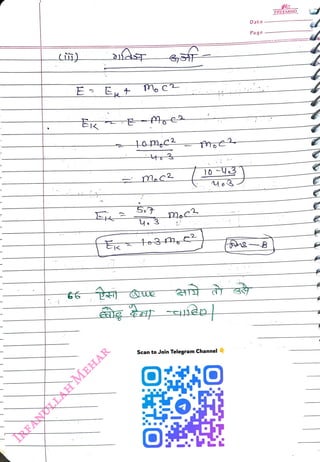 Date
Page
(iii) गतिज ऊर्जा -
E = E_K + m₀c²
E_K = E - m₀c²
= 10m₀c²/4.3 - m₀c²
= m₀c² (10-4.3/4.3)
E_K = 5.7/4.3 m₀c²
E_K = 1.3m₀c² Ans-B
ऐसा Que आये तो उसे
छोड़ देना चाहिए।
Scan to Join Telegram Channel 👆
IRFANULLAH MEHAR